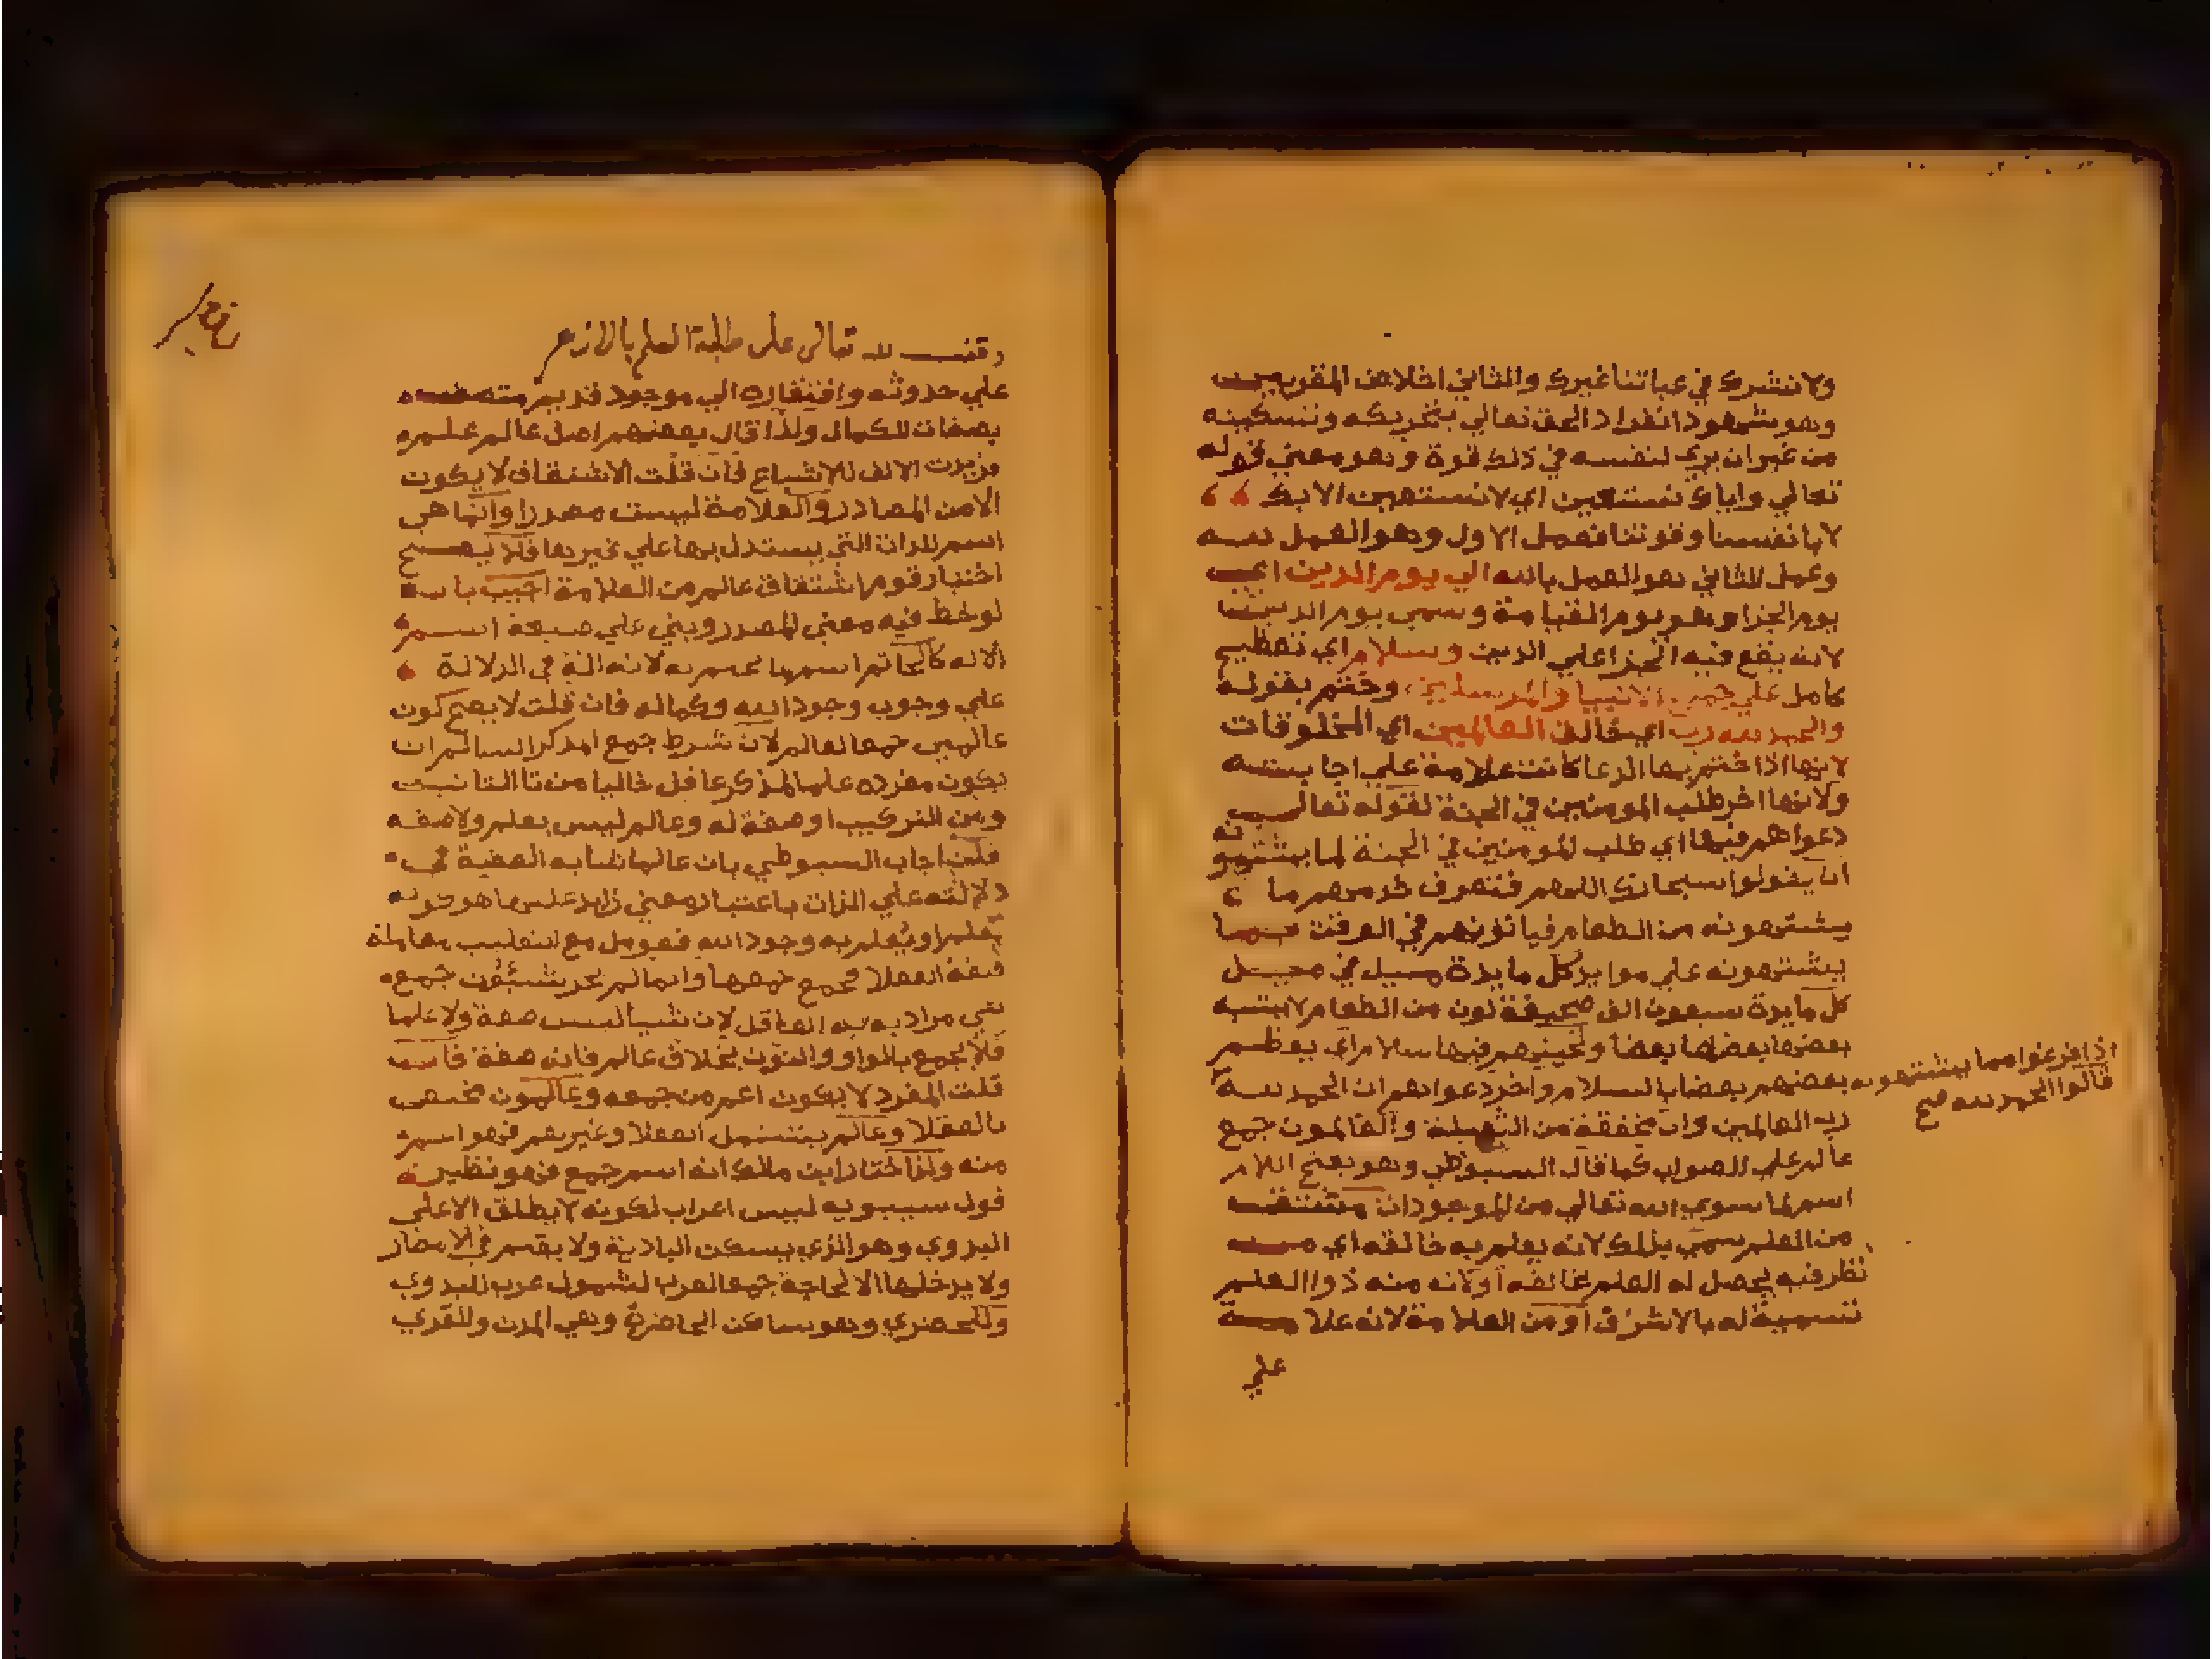 ولا نشرك في عباتنا غيرك والثاني اخلاص المقربين
وهو شهود انفراد الحق تعالي بتحريكه وتسكينه
من غير ان يري لنفسه في ذلك قوة وهو معني قوله
تعالي واياك نستعين اي لا نستعين الا بك
لا بانفسنا وقوتنا فعمل الاول وهو العمل لله
وعمل الثاني هو العمل بالله الي يوم الدين اي
يوم الجزا وهو يوم القيامة وسمي يوم الدين
لانه يقع فيه الجزا علي الدين وسلام اي تعظيم
كامل علي جميع الانبيا والمرسلين وختم بقوله
والحمد لله رب اي خالق العالمين اي المخلوقات
لانها اذا ختم بها الدعا كانت علامة علي اجابته
ولانها اخر طلب المومنين في الجنة لقوله تعالي
دعواهم فيها اي طلب المومنين في الجنة لما يشتهونه
ان يقولوا سبحانك اللهم فتعرف خدمهم ما
يشتهونه من الطعام فياتونهم في الوقت بما
يشتهونه علي موايد كل مايدة ميل في ميل
كل مايدة سبعون الف صحيفة لون من الطعام لا يشبه
بعضها بعضا وتحيتهم فيها سلام اي يعظم
بعضهم بعضا بالسلام واخر دعواهم ان الحمد لله
اذا فرغوا مما يشتهونه
قالوا الحمد لله صح
رب العالمين وان مخففة من الثقيلة والعالمون جمع
عالم علي الصواب كما قال السيوطي وهو بفتح اللام
اسم لما سوي الله تعالي من الموجودات مشتق
من العلم سمي بذلك لانه يعلم به خالقه اي من
نظر فيه يحصل له العلم بخالقه او لانه منه ذوا العلم
تسمية له بالاشرف او من العلامة لانه علامة
علي
وقف لله تعالى على طلبة العلم بالازهر
علي حدوثه وافتقاره الي موجود قديم متصف
بصفات الكمال ولذا قال بعضهم اصل عالم علم
زيدت الالف للاشباع فان قلت الاشتقاق لا يكون
الا من المصادر والعلامة ليست مصدرا وانما هي
اسم للذات التي يستدل بها علي غيرها فلا يصح
اختيار قوم اشتقاق عالم من العلامة اجيب بانه
لوحظ فيه معني المصدر وبني علي صيغة اسم
الالة كالخاتم اسم لما يختم به لانه الة في الدلالة
علي وجوب وجود الله وكماله فان قلت لا يصح كون
عالمين جمعا لعالم لان شرط جمع المذكر السالم ان
يكون مفرده علما لمذكر عاقل خاليا من تا التانيث
ومن التركيب او صفة له وعالم ليس بعلم ولا صفه
قلت اجاب السيوطي بان عالما شابه الصفة في
دلالته علي الذات باعتبار معني زايد عليها هو كونه
يعلم او يعلم به وجود الله فعومل مع التغليب معاملة
صفة العقلا فجمع جمعها وانما لم يجز شيئون جمع
شي مرادا به العاقل لان شيا ليس صفة ولا علما
فلا يجمع بالواو والنون بخلاف عالم فانه صفة فان
قلت المفرد لا يكون اعم من جمعه وعالمون مختص
بالعقلا وعالم يشمل العقلا وغيرهم فهو اسم
منه ولذا اختار ابن مالك انه اسم جمع فهو نظير
قول سيبويه ليس اعراب لكونه لا يطلق الا علي
البدوي وهو الذي يسكن البادية ولا يقيم في الامصار
ولا يدخلها الا لحاجة جمعا لعرب لشمول عرب للبدوي
وللحضري وهو ساكن الحاضرة وهي المدن والقري